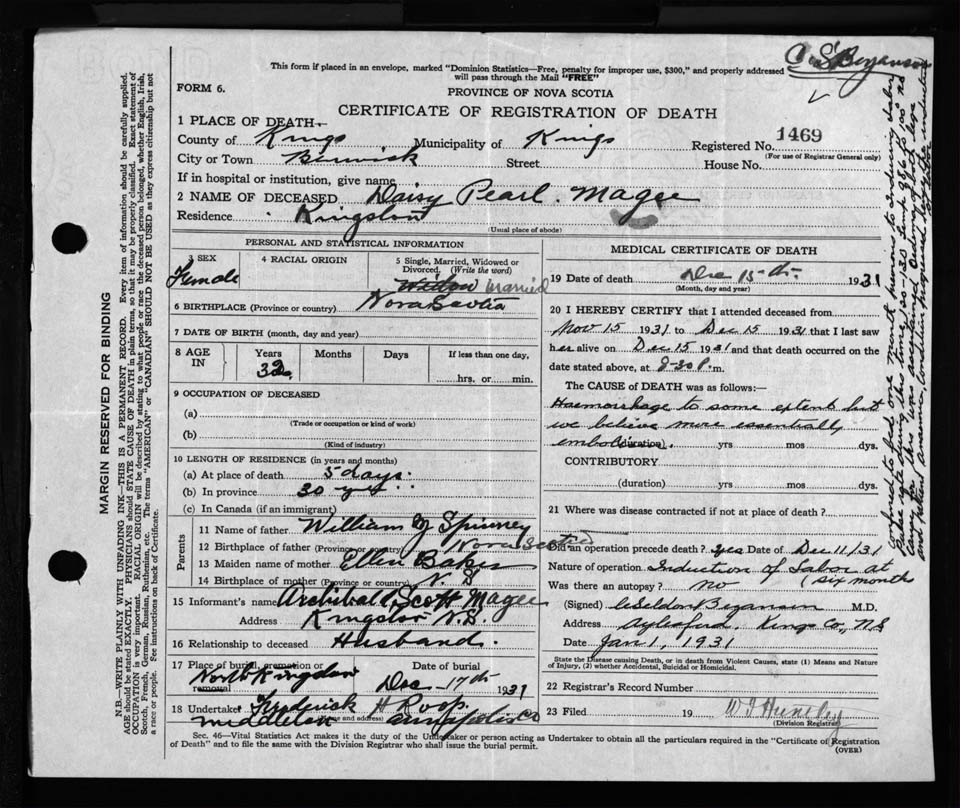 This form if placed in an envelope, marked "Dominion Statistics—Free, penalty for improper use, $300," and properly addressed
will pass through the Mail "FREE"
FORM 6.
PROVINCE OF NOVA SCOTIA
CERTIFICATE OF REGISTRATION OF DEATH
1 PLACE OF DEATH—
County of Kings Municipality of Kings Registered No. 1469
(For use of Registrar General only)
City or Town Berwick Street House No.
If in hospital or institution, give name
2 NAME OF DECEASED Daisy Pearl Magee
Residence Kingston
(Usual place of abode)
PERSONAL AND STATISTICAL INFORMATION
3 SEX
Female
4 RACIAL ORIGIN
5 Single, Married, Widowed or
Divorced. (Write the word)
Widow married
6 BIRTHPLACE (Province or country) Nova Scotia
7 DATE OF BIRTH (month, day and year)
8 AGE IN
Years
32
Months
Days
If less than one day,
hrs. or min.
9 OCCUPATION OF DECEASED
(a)
(Trade or occupation or kind of work)
(b)
(Kind of industry)
10 LENGTH OF RESIDENCE (in years and months)
(a) At place of death 5 days
(b) In province 30 yrs
(c) In Canada (if an immigrant)
Parents
11 Name of father William Spinney
12 Birthplace of father (Province or country) Nova Scotia
13 Maiden name of mother Ellen Baker
14 Birthplace of mother (Province or country) N. S
15 Informant's name Archibald Scott Magee
Address Kingston N.S.
16 Relationship to deceased Husband.
17 Place of burial, cremation or
removal North Kingston
Date of burial
Dec 17th 1931
18 Undertaker Frederick H Roop
(Name and address) Middleton Annapolis Co
MEDICAL CERTIFICATE OF DEATH
19 Date of death Dec 15th 1931
(Month, day and year)
20 I HEREBY CERTIFY that I attended deceased from
Nov 15 1931 to Dec 15 1931 that I last saw
her alive on Dec 15 1931 and that death occurred on the
date stated above, at 8-30 P.m.
The CAUSE OF DEATH was as follows:—
Haemorrhage to some extent but
we believe more essentially
embolus (duration) yrs mos dys.
CONTRIBUTORY
(duration) yrs mos dys.
21 Where was disease contracted if not at place of death?
Did an operation precede death? yes Date of Dec 11/31
Nature of operation Induction of Labor at
(six months
Was there an autopsy? No
(Signed) M.D.
Address Aylesford, Kings Co, N.S
Date Jan 1, 1931
State the Disease causing Death, or in death from Violent Causes, state (1) Means and Nature
of Injury, (2) whether Accidental, Suicidal or Homicidal.
22 Registrar's Record Number
23 Filed 19 W J Huntley
(Division Registrar)
Sec. 46—Vital Statistics Act makes it the duty of the Undertaker or person acting as Undertaker to obtain all the particulars required in the "Certificate of Registration
of Death" and to file the same with the Division Registrar who shall issue the burial permit.
(OVER)
MARGIN RESERVED FOR BINDING
N.B.—WRITE PLAINLY WITH UNFADING INK—THIS IS A PERMANENT RECORD. Every item of information should be carefully supplied.
AGE should be stated EXACTLY. PHYSICIANS should STATE CAUSE OF DEATH in plain terms, so that it may be properly classified. Exact statement of
OCCUPATION is very important. RACIAL ORIGIN will be described by stating to what people or race the deceased person belonged, whether English, Irish,
Scotch, French, German, Russian, Ruthenian, etc. The terms "AMERICAN" or "CANADIAN" SHOULD NOT BE USED as they express citizenship but not
a race or people. See instructions on back of Certificate.
confined to bed one month previous to inducing labor